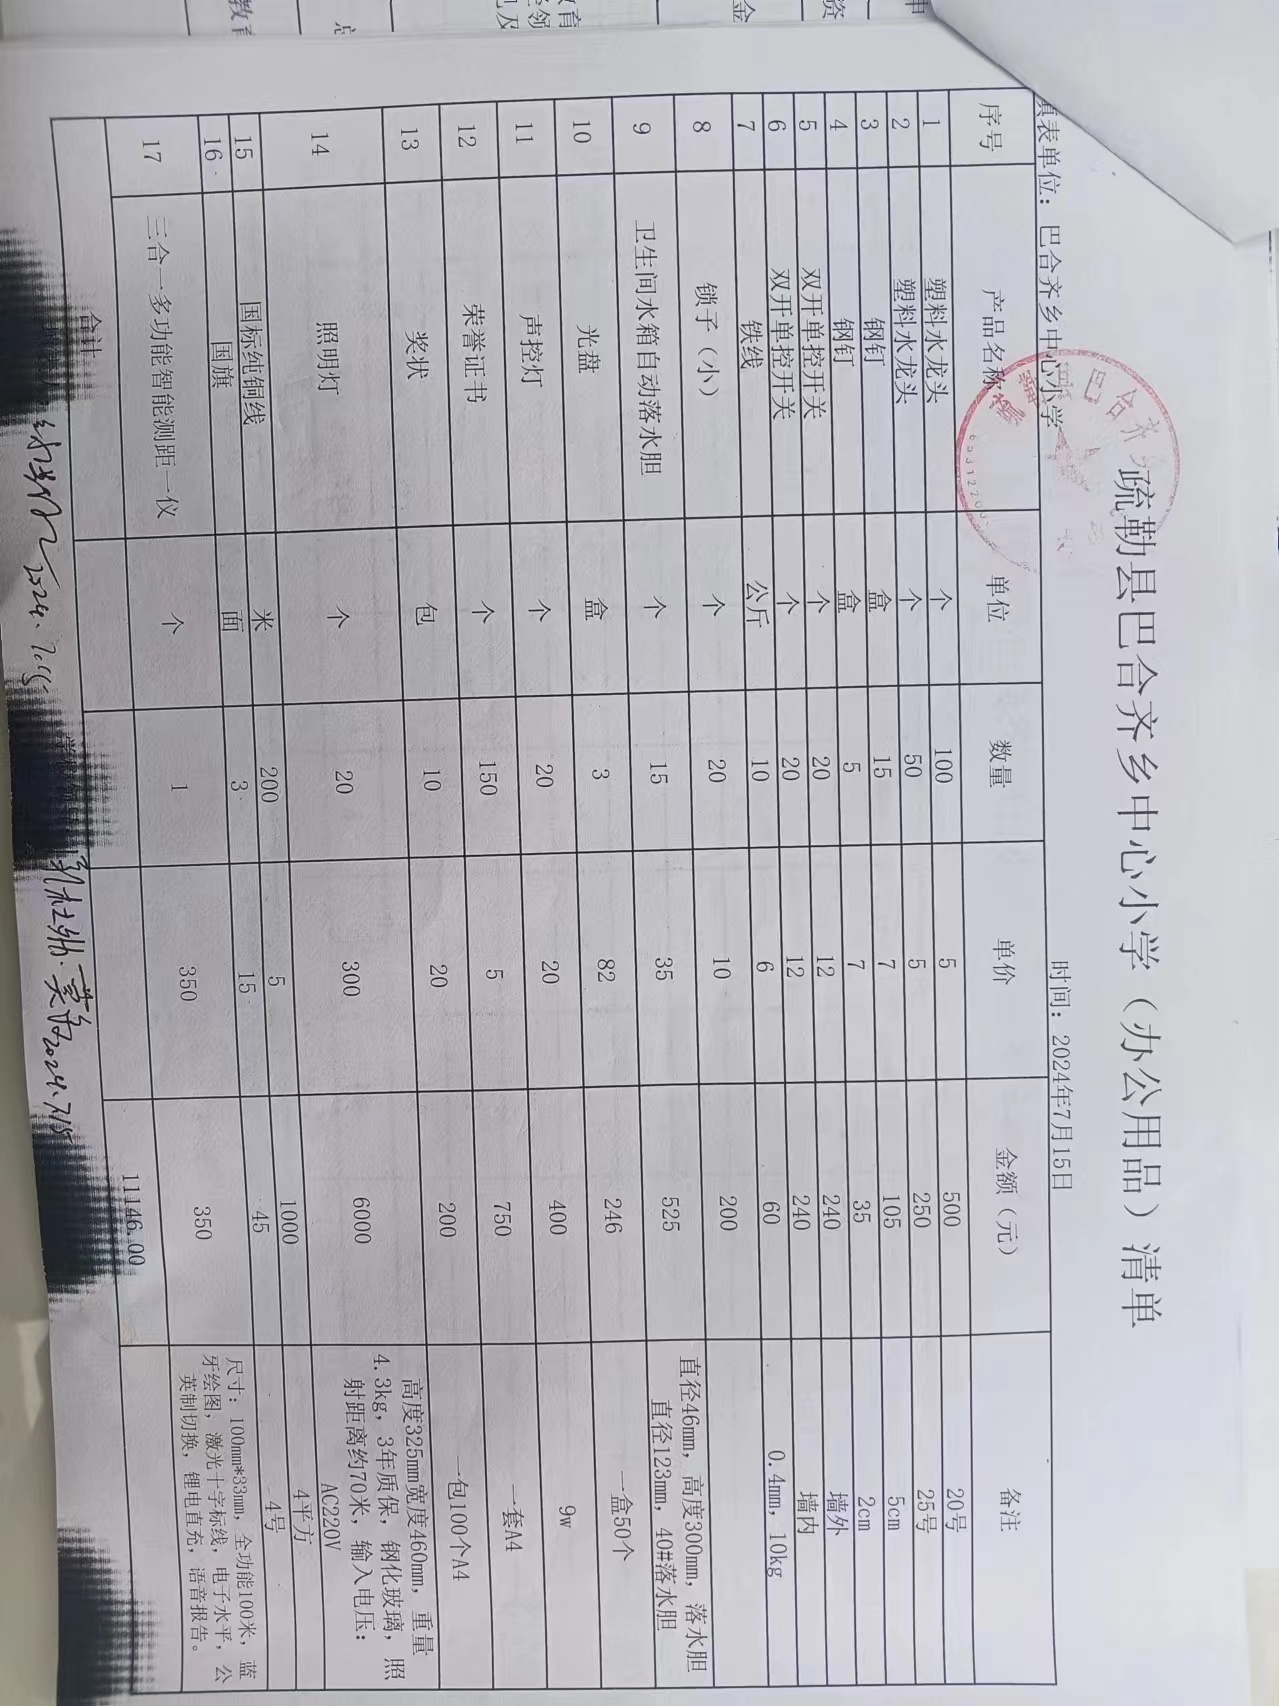 疏勒县巴合齐乡中心小学（办公用品）清单
填表单位：巴合齐乡中心小学 时间：2024年7月15日
序号 产品名称 单位 数量 单价 金额（元） 备注
1 塑料水龙头 个 100 5 500 20号
2 塑料水龙头 个 50 5 250 25号
3 钢钉 盒 15 7 105 5cm
4 钢钉 盒 5 7 35 2cm
5 双开单控开关 个 20 12 240 墙外
6 双开单控开关 个 20 12 240 墙内
7 铁线 公斤 10 6 60 0.4mm，10kg
8 锁子（小） 个 20 10 200
9 卫生间水箱自动落水胆 个 15 35 525 直径46mm，高度300mm，落水胆
直径123mm，40#落水胆
10 光盘 盒 3 82 246 一盒50个
11 声控灯 个 20 20 400 9w
12 荣誉证书 个 150 5 750 一套A4
13 奖状 包 10 20 200 一包100个A4
14 照明灯 个 20 300 6000 高度325mm宽度460mm，重量
4.3kg，3年质保，钢化玻璃，照
射距离约70米，输入电压：
AC220V
15 国标纯铜线 米 200 5 1000 4平方
16 国旗 面 3 15 45 4号
17 三合一多功能智能测距一仪 个 1 350 350 尺寸：100mm*33mm，全功能100米，蓝
牙绘图，激光十字标线，电子水平，公
英制切换，锂电直充，语音报告。
合计 11146.00
2024.7.15